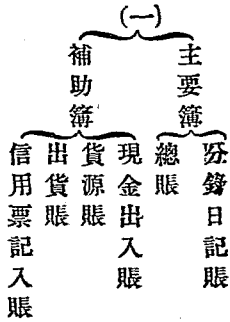 (一)
主要簿
分錄日記賬
總賬
補助簿
現金出入賬
貨源賬
出貨賬
信用票記入賬